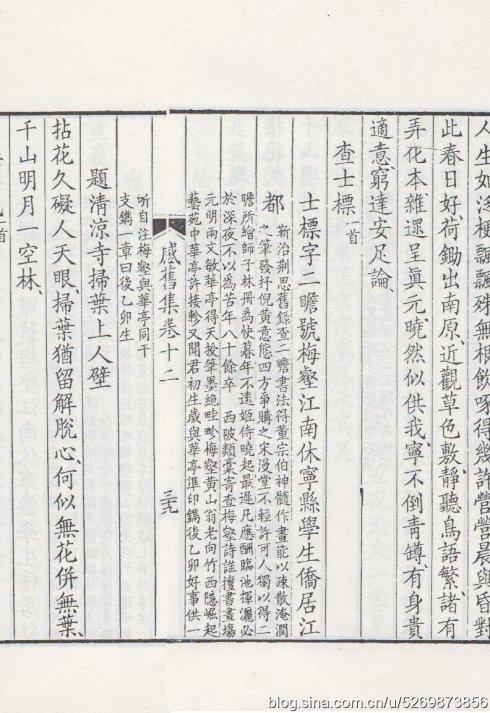 人生如泛梗飄飄殊無根飲啄得幾許營營晨與昏對
此春日好荷鋤出南原近觀草色敷靜聽鳥語繁諸有
弄化本雜還呈眞元曉然似供我寧不倒青罇有身貴
適意窮達安足論
查士標一首
士標字二瞻號梅壑江南休寧縣學生僑居江
都
靳治荆思舊錄查二瞻書法得董宗伯神髓作畫能以疎散淹潤
之筆發抒倪黄意態四方爭購之宋漫堂不輕許可人獨以得二
瞻所繪師子林冊為快暮年不遠姬侍曉起最遲凡應酬臨池揮灑必
於深夜不以為苦年八十餘卒 西陂類槀寄查梅壑詩誰擅書畫塲
元明兩文敏華亭得天授筆墨絶畦畛梅壑黄山翁老向竹西隱崛起
藝苑中華亭許接軫又聞君初生歲與華亭準印鐫後乙卯好事供一
感舊集卷十二
三九
听自注梅壑與華亭同干
支鐫一章曰後乙卯生
題清涼寺掃葉上人壁
拈花久礙人天眼掃葉猶留解脫心何似無花併無葉
千山明月一空林
一首
blog.sina.com.cn/u/5269873856